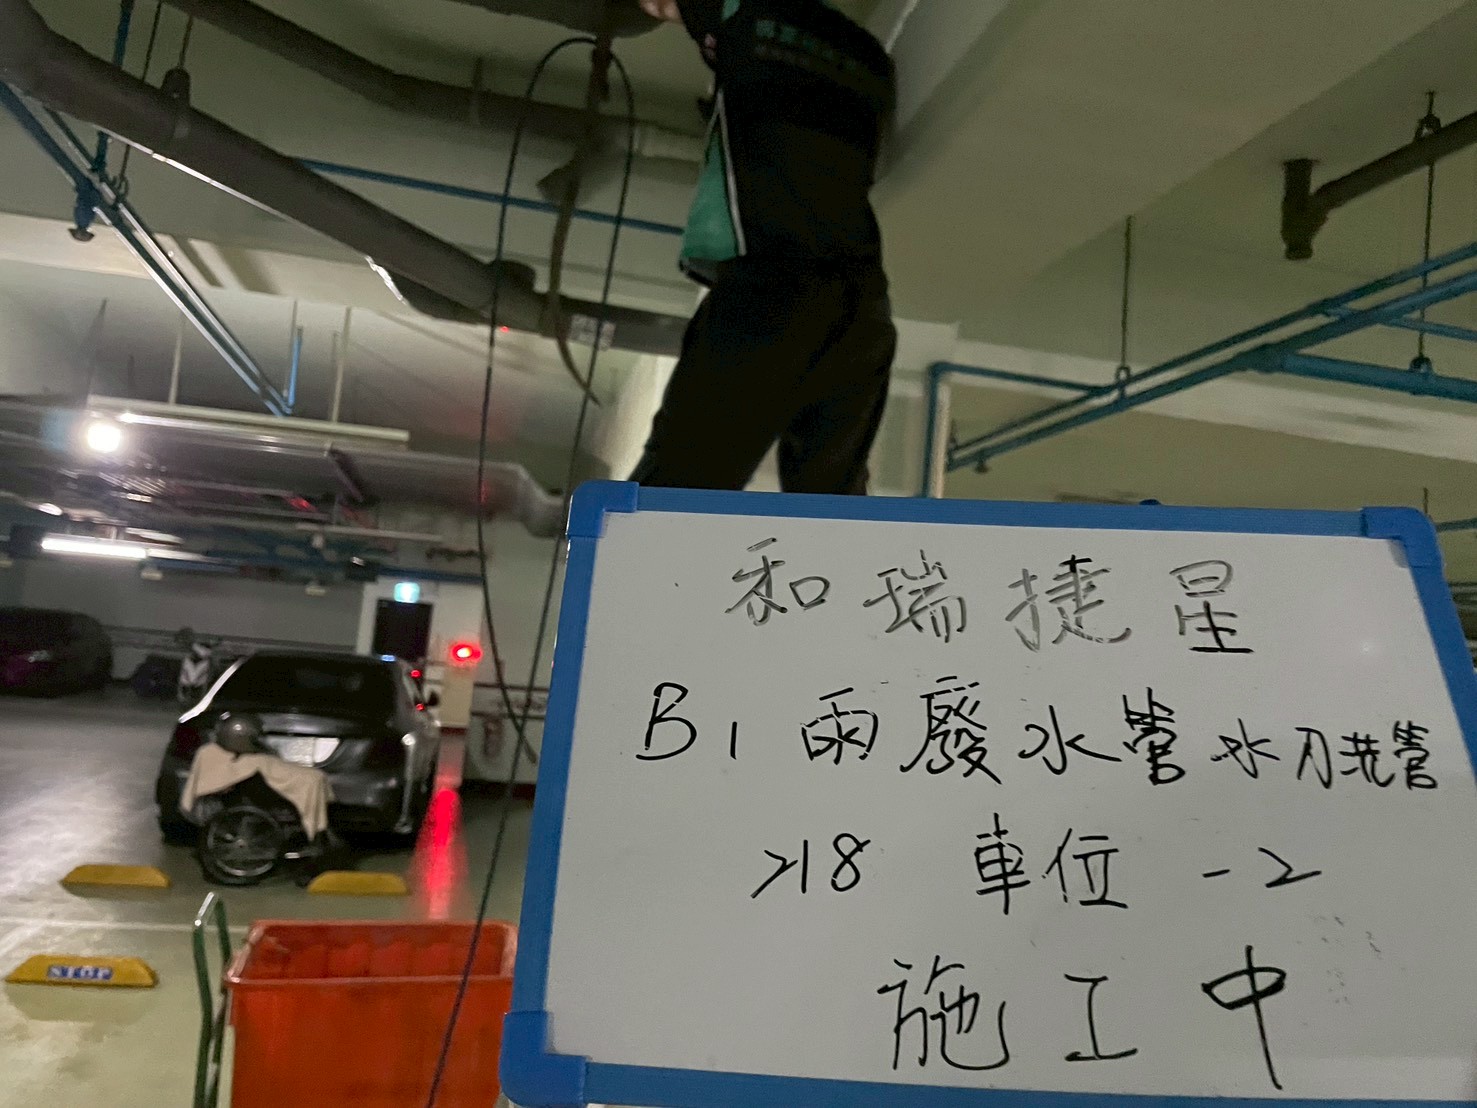 和瑞捷星
B1 雨廢水管水刀洗管
218 車位 -2
施工中
STOP